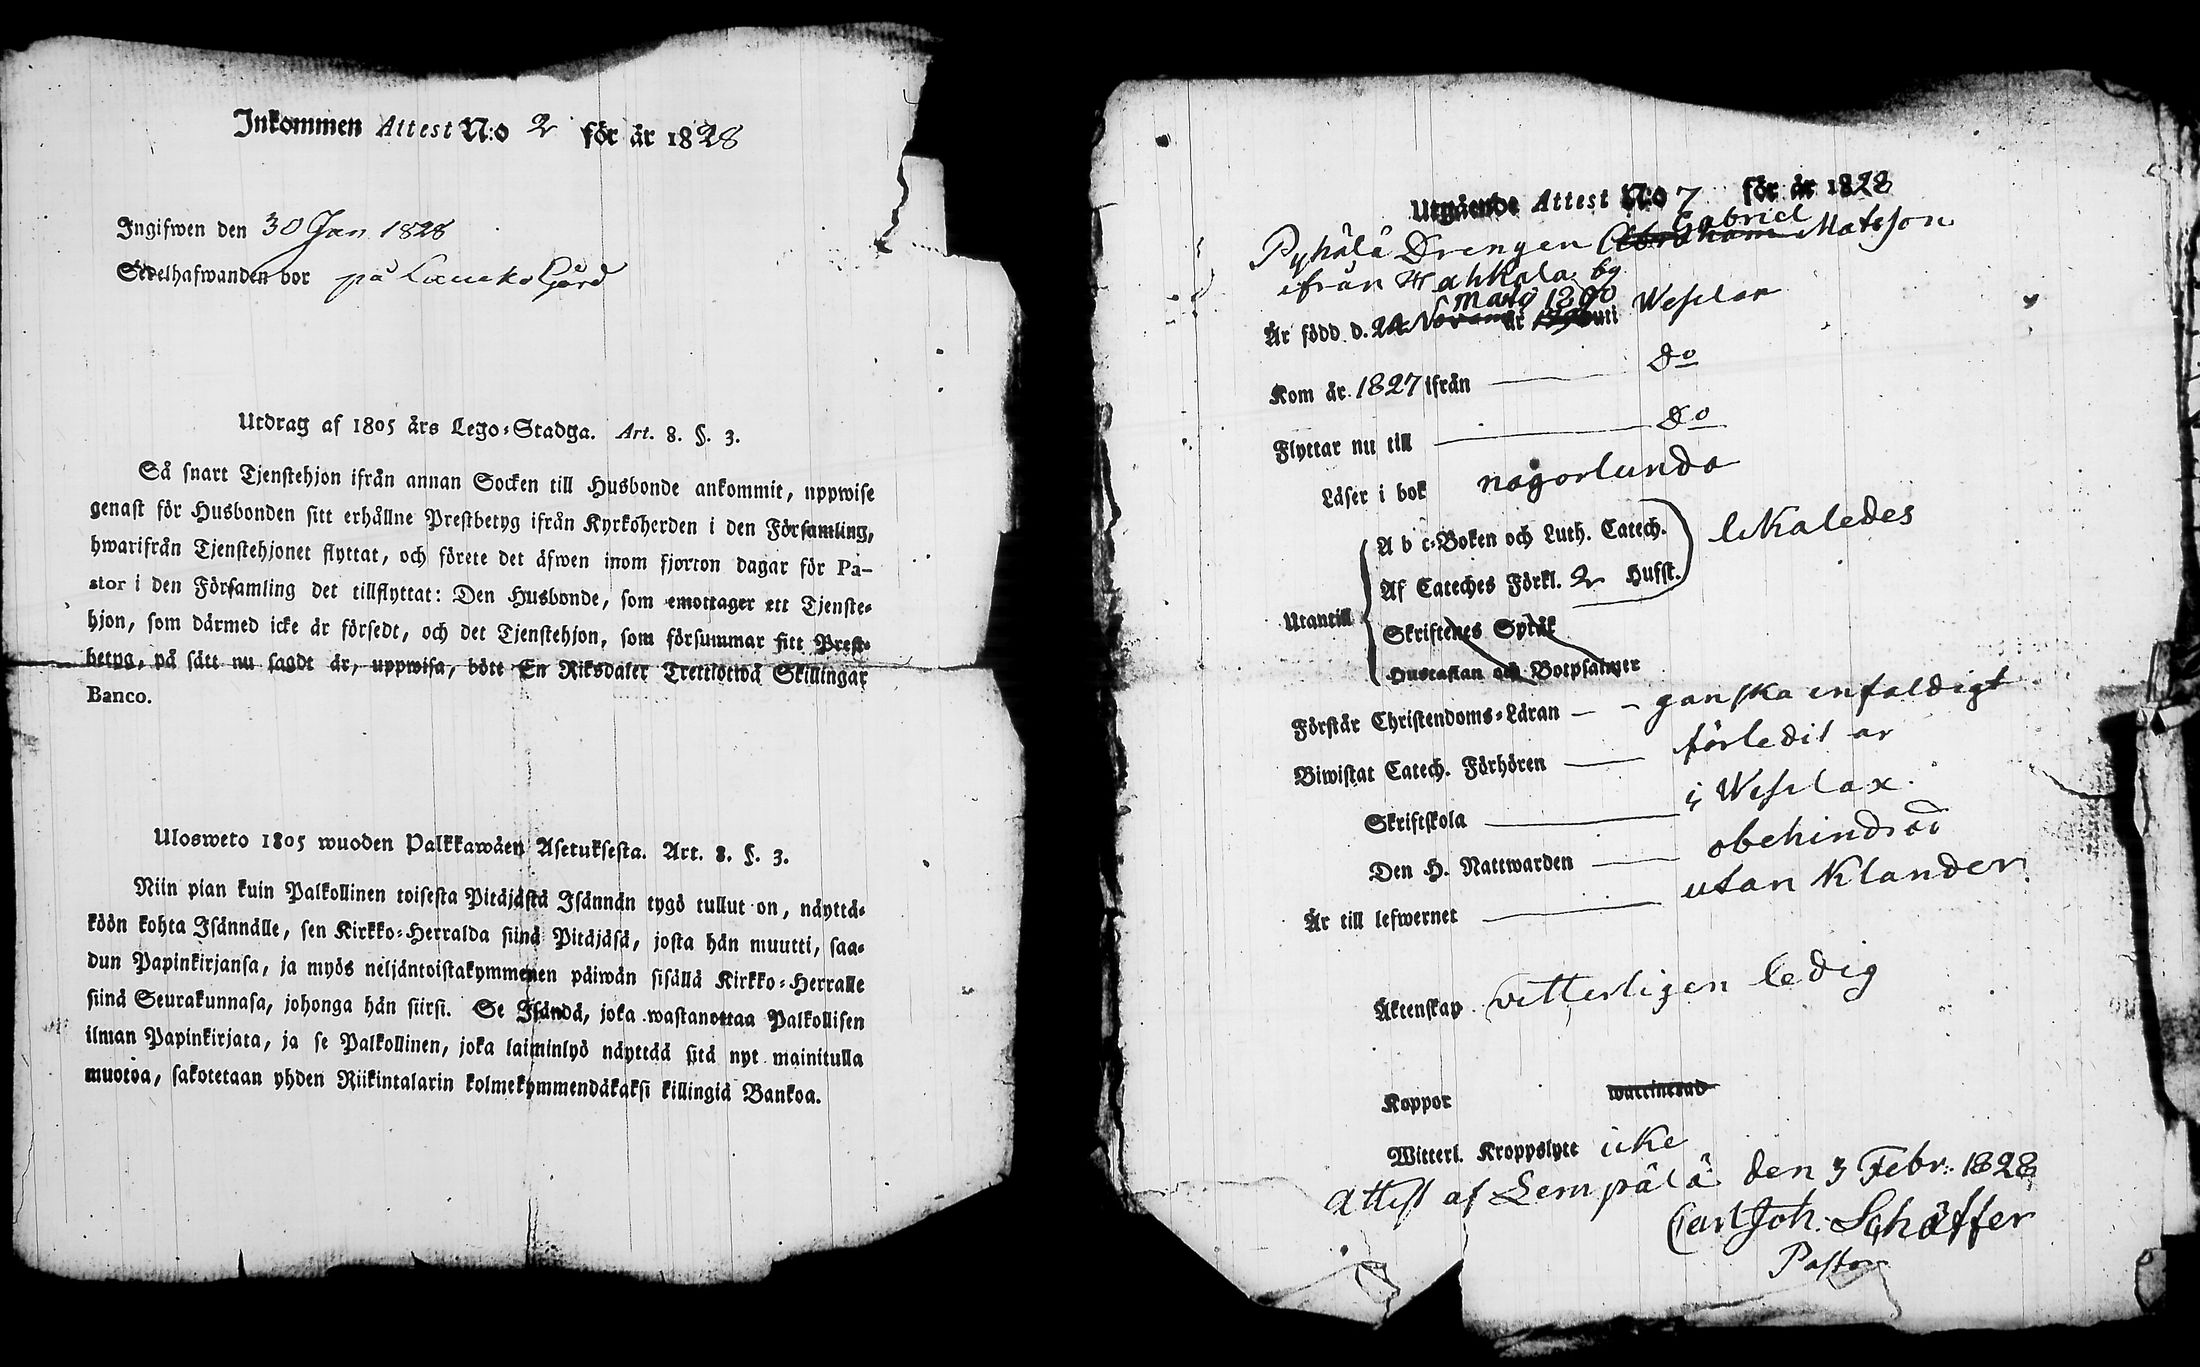 Inkommen Attest N:o 2 för år 1828
Ingifwen den 30 Jan 1828
Sedelhafwanden bor på Gård
Utdrag af 1805 års Lego-Stadga. Art. 8. §. 3.
Så snart Tjenstehjon ifrån annan Socken till Husbonde ankommit, uppwise
genast för Husbonden sitt erhållne Prestbetyg ifrån Kyrkoherden i den Församling,
hwarifrån Tjenstehjonet flyttat, och förete det äfwen inom fjorton dagar för Pa-
stor i den Församling det tillflyttat: Den Husbonde, som emottager ett Tjenste-
hjon, som därmed icke är försedt, och det Tjenstehjon, som försummar sitt Prest-
betyg, på sätt nu sagdt är, uppwisa, böte En Riksdaler Trettiotwå Skillingar
Banco.
Ulosweto 1805 wuoden Palkkawäen Asetuksesta. Art. 8. §. 3.
Niin pian kuin Palkollinen toisesta Pitäjästä Isännän tygö tullut on, näyttä-
köön kohta Isännälle, sen Kirkko-Herralda siinä Pitäjäsä, josta hän muutti, saa-
dun Papinkirjansa, ja myös neljäntoistakymmenen päiwän sisällä Kirkko-Herralle
siinä Seurakunnasa, johonga hän siirsi. Se Isändä, joka wastanottaa Palkollisen
ilman Papinkirjata, ja se Palkollinen, joka laiminlyö näyttää sitä nyt mainitulla
muotoa, sakotetaan yhden Riikintalarin kolmekymmendäkaksi killingiä Bankoa.
Utgående Attest N:o 7 för år 1828
Pyhälä Drengen Abraham Gabriel Matsson
ifrån Wahkala by
Är född d. 24 Novem Maij 1800 år uti Weselax
Kom år 1827 ifrån do
Flyttar nu till do
Läser i bok någorlunda
Utantill
A b c-Boken och Luth. Catech. likaledes
Af Cateches Förkl. 2 Hufst.
Skriftenes Språk
Hustaflan och Botpsalmer
Förstår Christendoms-Läran ganska enfaldigt
Biwistat Catech. Förhören förledit år
Skriftskola i Weselax.
Den H. Nattwarden obehindrad
Är till lefwernet utan klander
Äktenskap vitterligen ledig
Koppor waccinerad
Witterl. Kroppslyte icke
Attest af Lempälä den 3 Febr: 1828
Carl Joh. Schäffer
Pastor